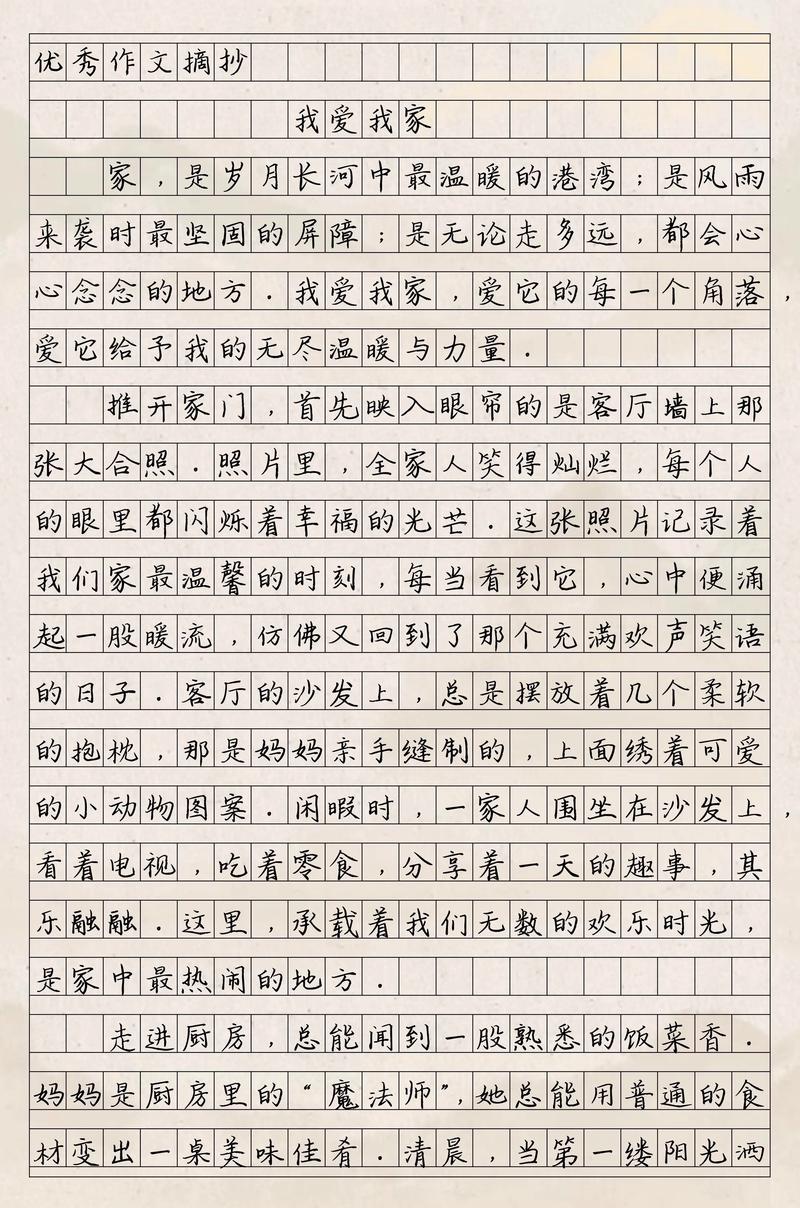 优秀作文摘抄
我爱我家
家，是岁月长河中最温暖的港湾；是风雨
来袭时最坚固的屏障；是无论走多远，都会心
心念念的地方．我爱我家，爱它的每一个角落，
爱它给予我的无尽温暖与力量．
推开家门，首先映入眼帘的是客厅墙上那
张大合照．照片里，全家人笑得灿烂，每个人
的眼里都闪烁着幸福的光芒．这张照片记录着
我们家最温馨的时刻，每当看到它，心中便涌
起一股暖流，仿佛又回到了那个充满欢声笑语
的日子．客厅的沙发上，总是摆放着几个柔软
的抱枕，那是妈妈亲手缝制的，上面绣着可爱
的小动物图案．闲暇时，一家人围坐在沙发上，
看着电视，吃着零食，分享着一天的趣事，其
乐融融．这里，承载着我们无数的欢乐时光，
是家中最热闹的地方．
走进厨房，总能闻到一股熟悉的饭菜香．
妈妈是厨房里的“魔法师”，她总能用普通的食
材变出一桌美味佳肴．清晨，当第一缕阳光洒